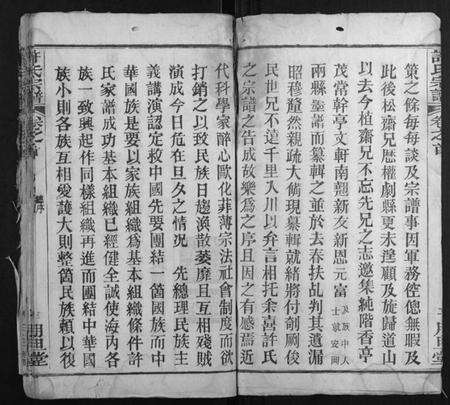 策之餘每每談及宗譜事因軍務倥傯無暇及
此後松齋兄歷權劇縣更未遑顧及旋歸道山
以去今植齋兄不忘先兄之志邀集純階香亭
茂常幹亭文軒南翹新友新恩元富
兩縣墨譜而纂輯之並於去春扶乩判其遺漏
昭穆釐然親疏大備現纂輯就緒將付剞劂俊
民世兄不遠千里入川以弁言相托余喜許氏
之宗譜之告成故樂為之序且因之有感焉近
代科學家醉心歐化菲薄宗法社會制度而欲
打銷之以致民族日趨渙散萎靡且互相殘賊
演成今日危在旦夕之情況 先總理民族主
義講演認定救中國先要團結一箇國族而中
華國族是要以家族組織為基本組織條件許
氏家譜成功基本組織已經健全誠使海內各
族一致興起作同樣組織再進而團結中華國
族小則各族互相愛護大則整箇民族賴以復
許氏宗譜
卷之首